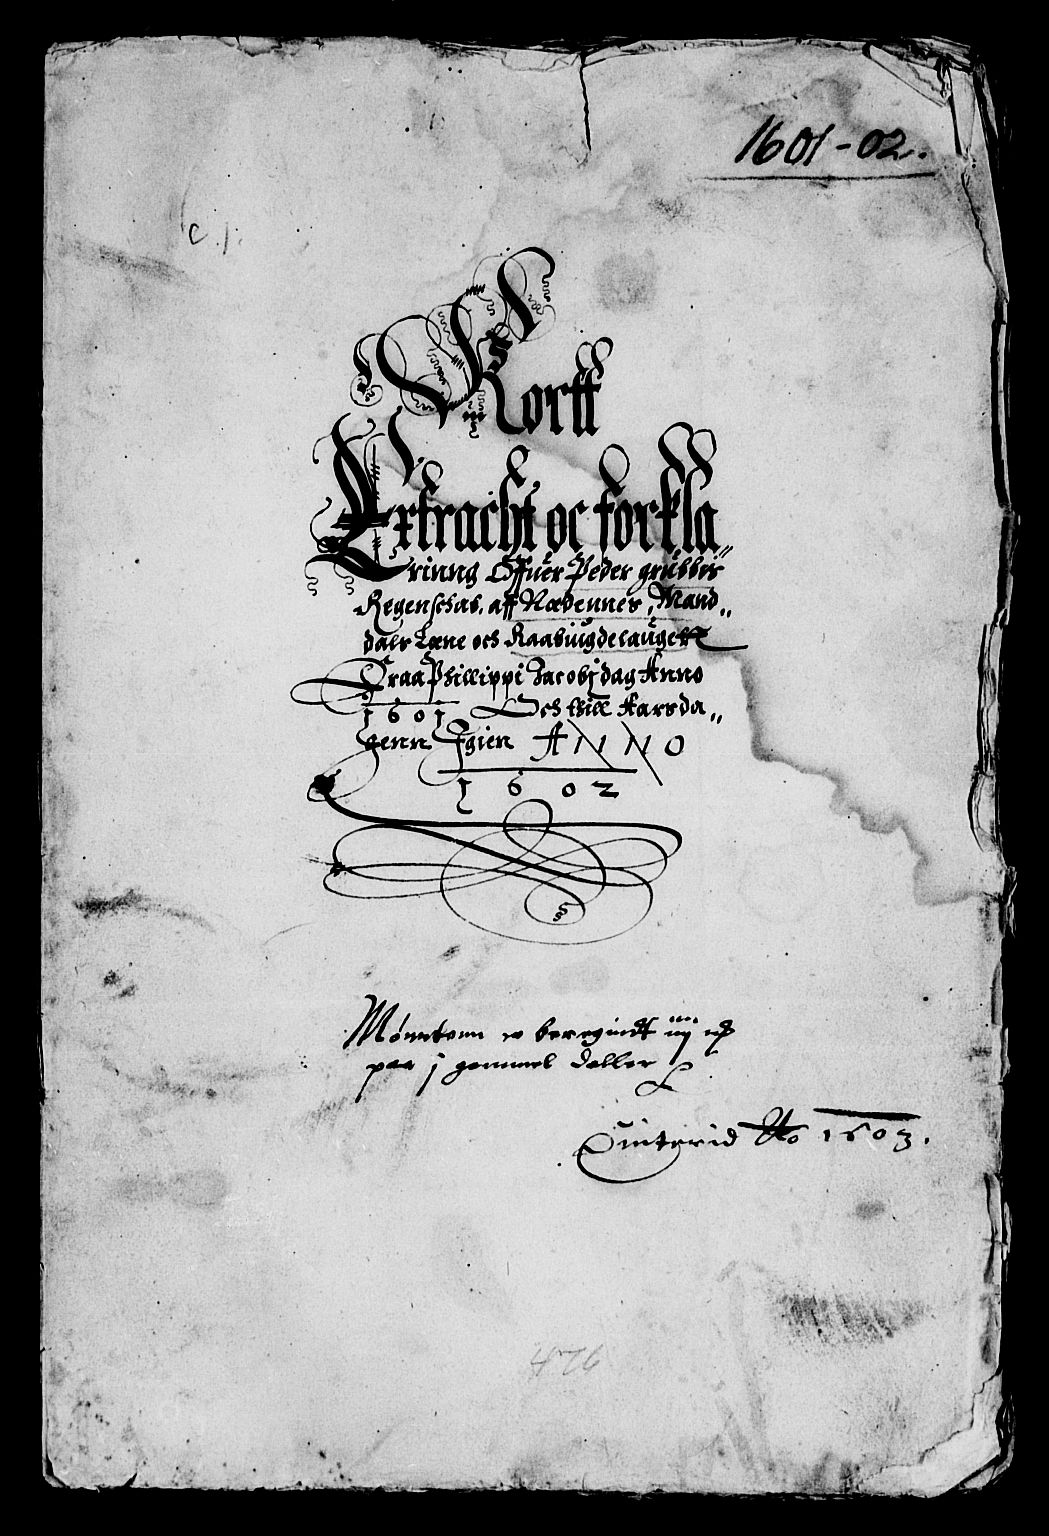 1601-02.
C. j.
Kortt
Extracht oc forkla
rinng Offuer Peder grubbis
Regenschab, aff Nædennes, Mand,,
dals Læne och Raabiugdelauget
Fraa Phillippi Jacobj dag Anno
1601 Och thill Aarsda,,
genn Igien ANNO
1602
Mønnten er beregindt iiij
paa j gammel daller
Quiterid Ao 1603.
476